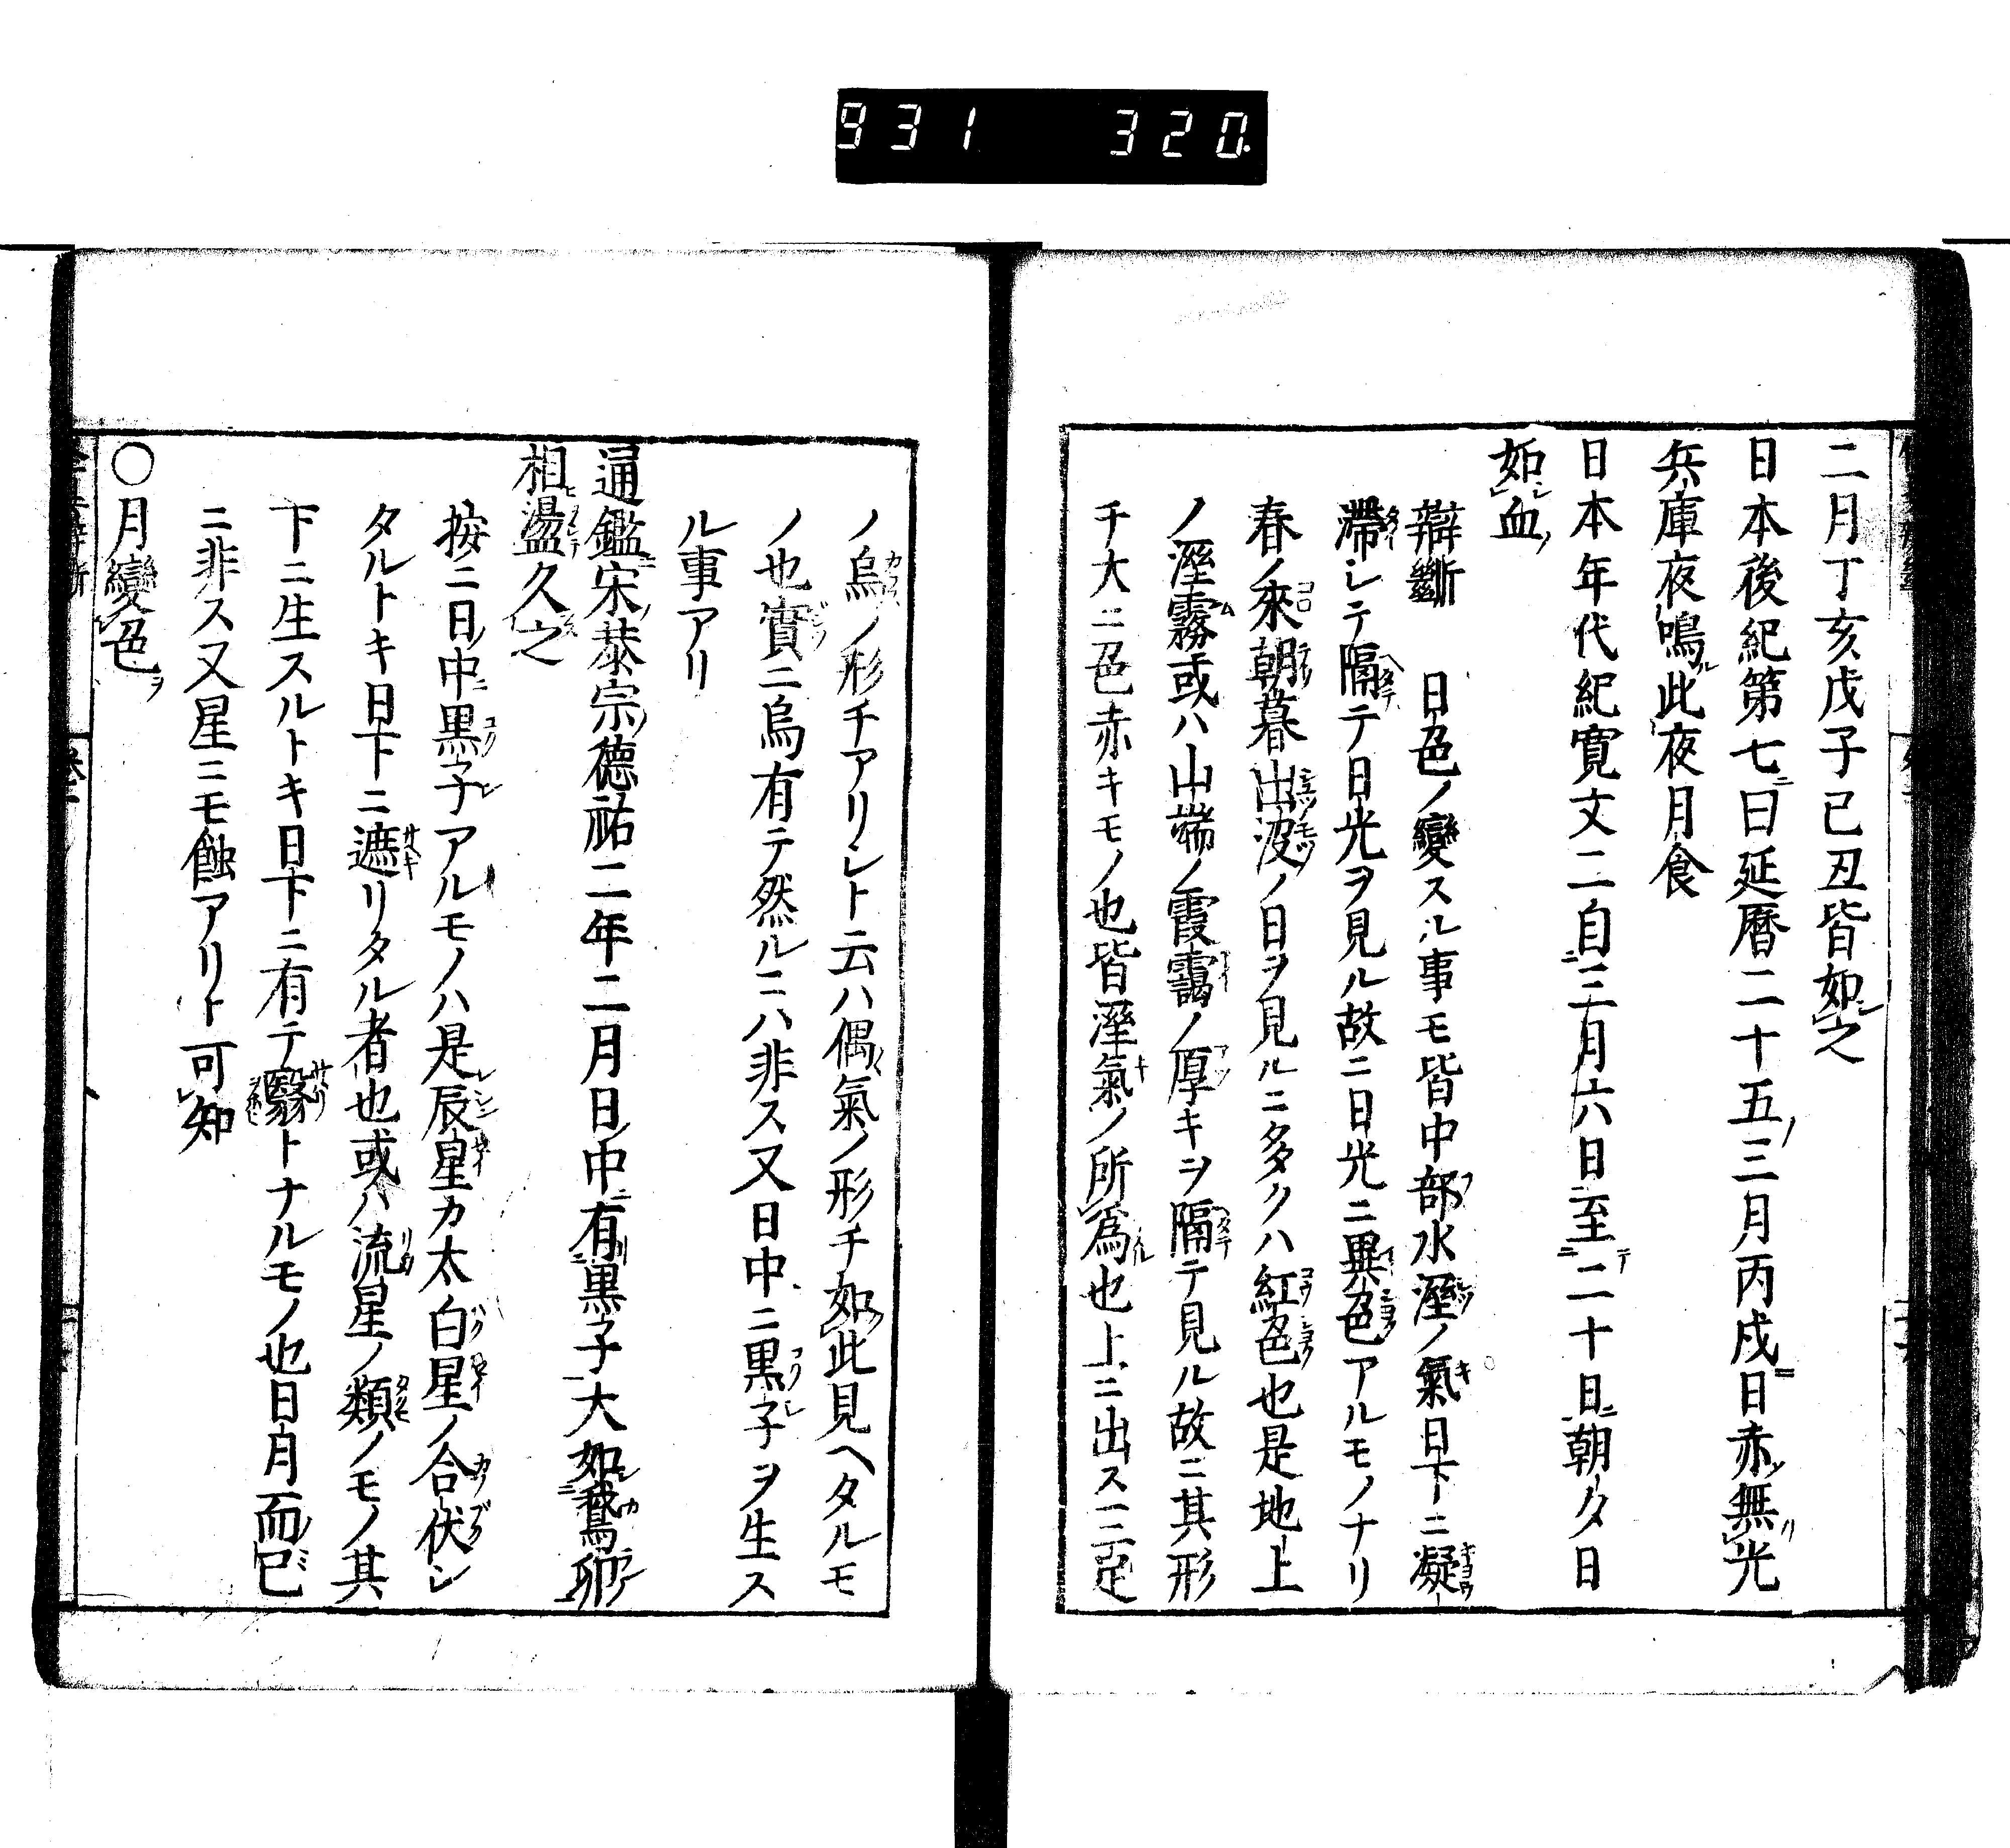 931 320
二月丁亥戊子己丑皆如之
日本後紀第七曰延暦二十五三月丙戌日赤無光
兵庫夜鳴此夜月食
日本年代紀寛文二自三月六日至二十日朝夕日
如血
辯斷 日色ノ變スル事モ皆中部水溼ノ氣日下ニ凝
滯シテ隔テ日光ヲ見ル故ニ日光ニ異色アルモノナリ
春ノ來朝暮出没ノ日ヲ見ルニ多クハ紅色也是地上
ノ溼霧或ハ山端ノ霞靄ノ厚キヲ隔テ見ル故ニ其形
チ大ニ色赤キモノ也皆溼氣ノ所爲也上ニ出ス三足
ノ烏ノ形チアリシト云ハ偶氣ノ形チ如此見ヘタルモ
ノ也實ニ烏有テ然ルニハ非ス又日中ニ黒子ヲ生ス
ル事アリ
通鑑宋恭宗德祐二年二月日中有黒子大如鵞卵
相盪久之
按ニ日中黒子アルモノハ是辰星カ太白星ノ合伏シ
タルトキ日下ニ遮リタル者也或ハ流星ノ類ノモノ其
下ニ生スルトキ日下ニ有テ翳トナルモノ也日月而已
ニ非ス又星ニモ蝕アリト可知
○月變色